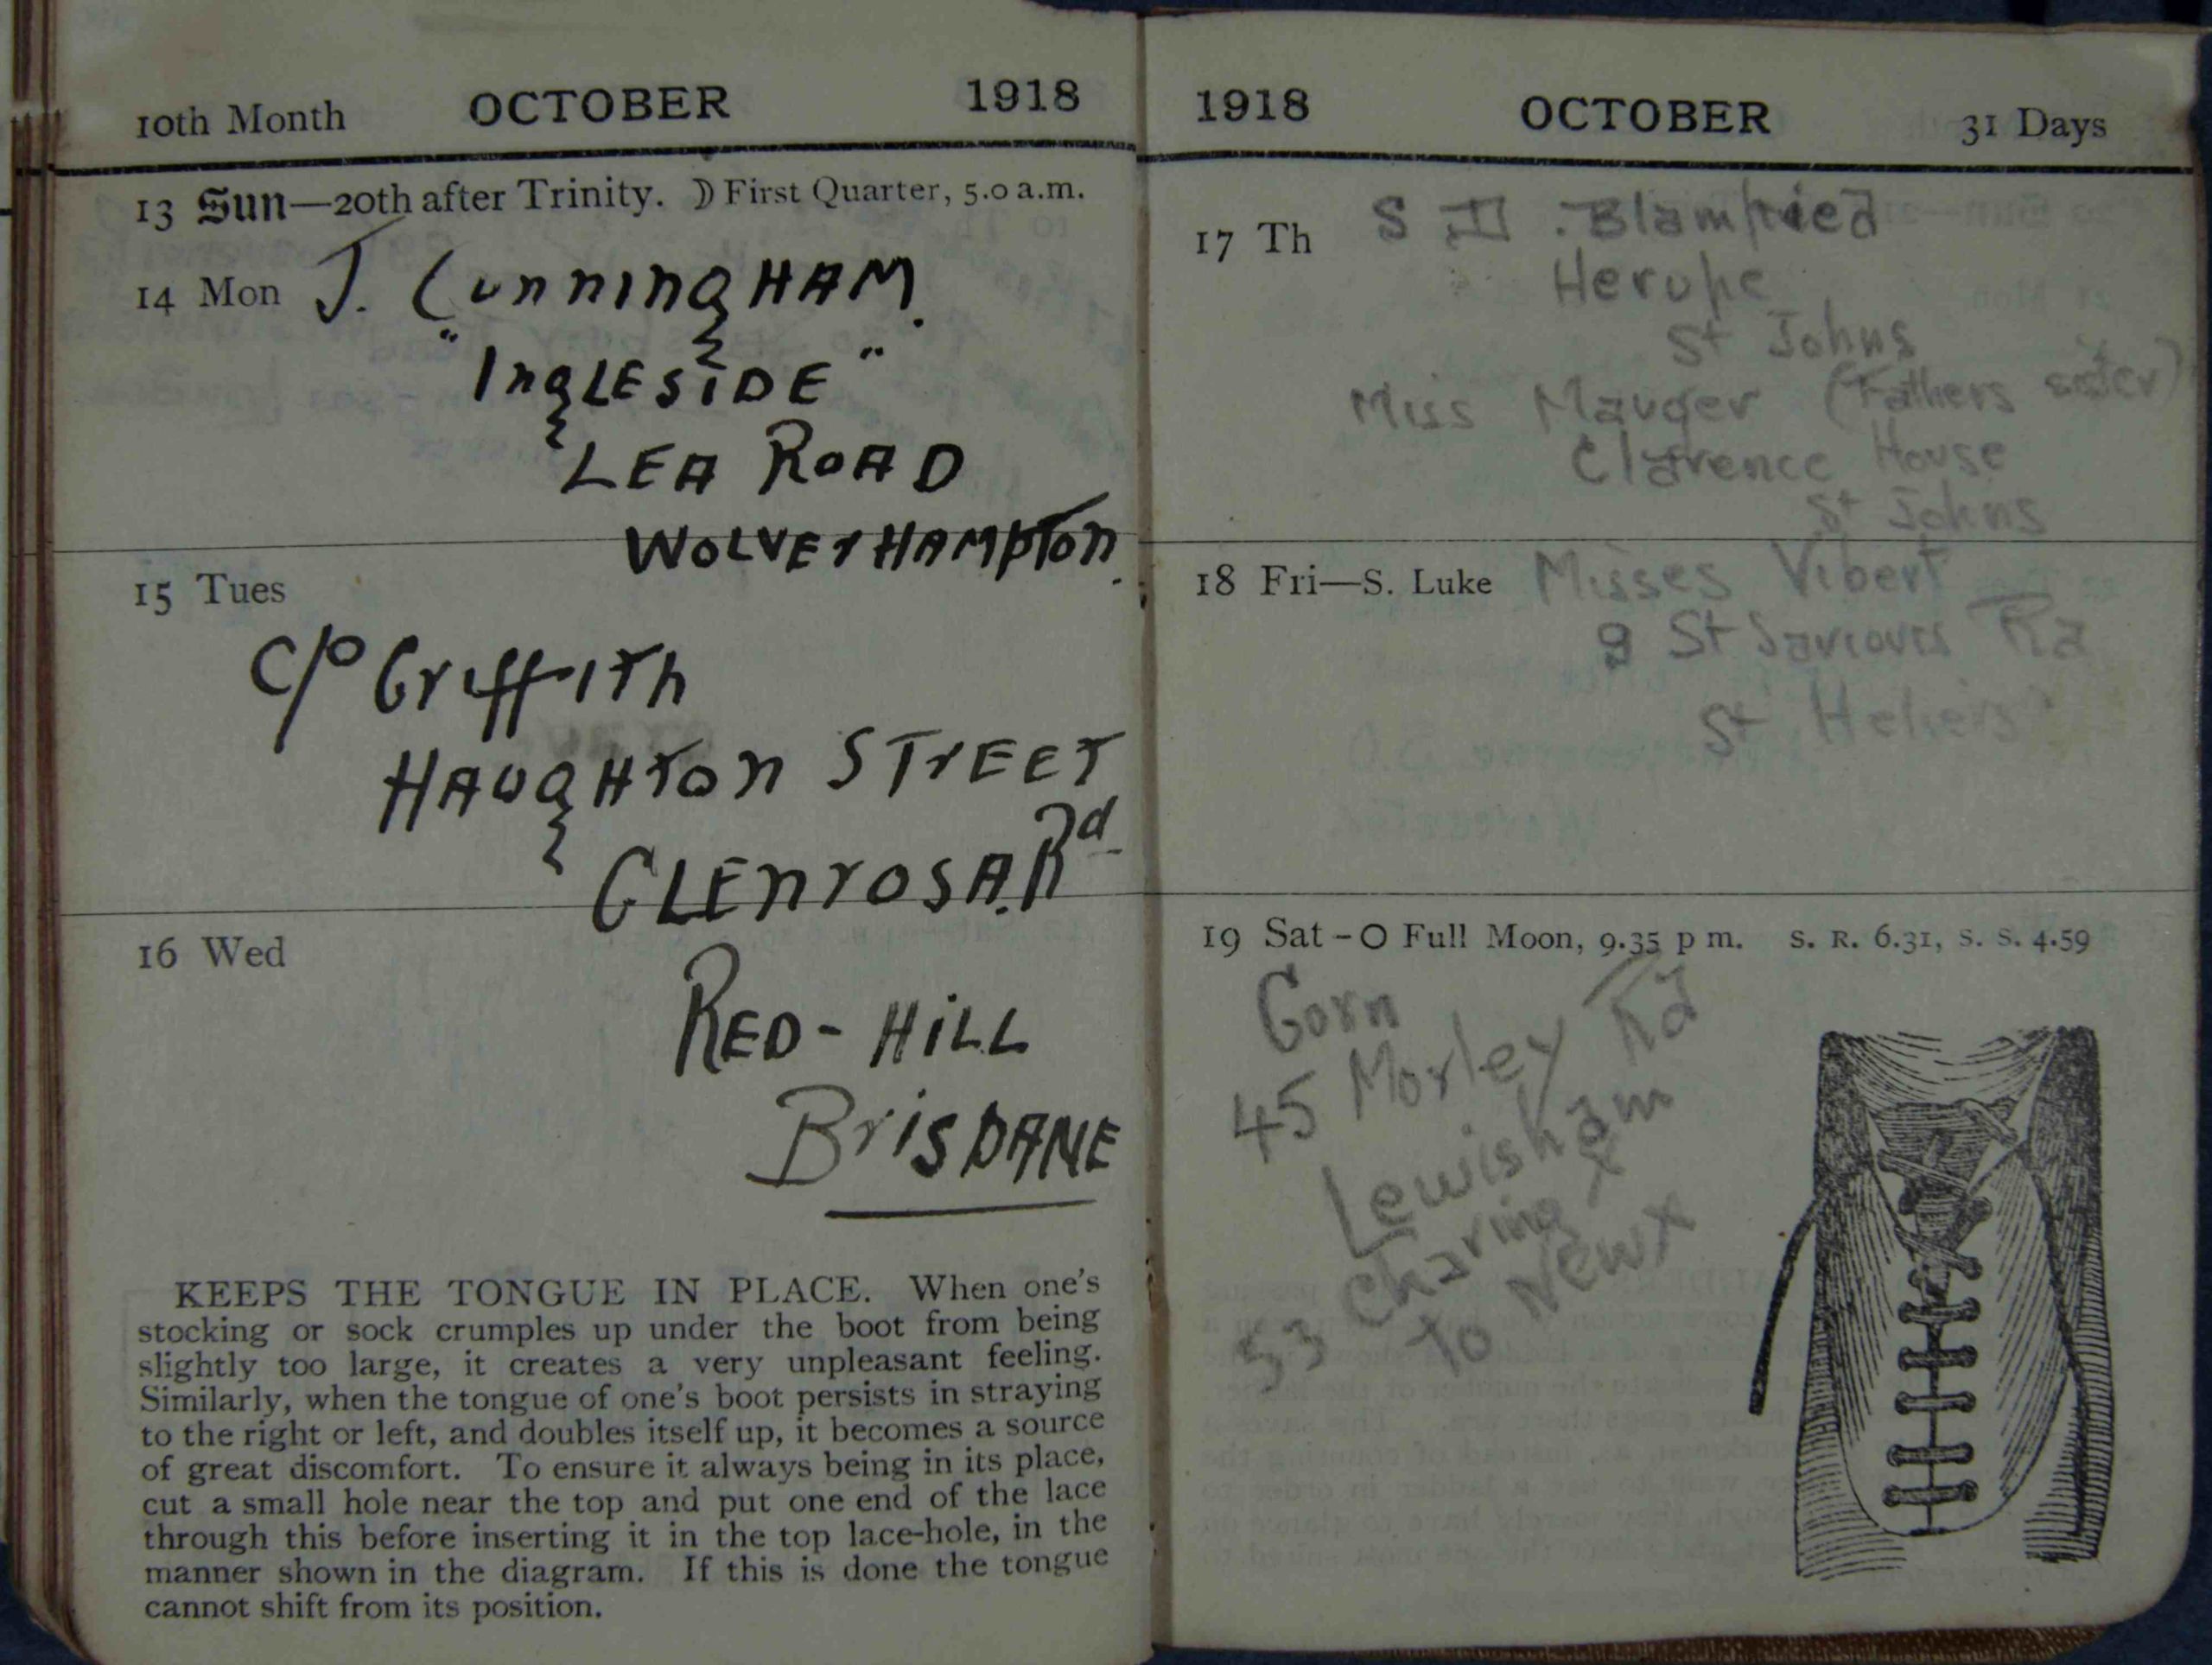 10th Month OCTOBER 1918
13 Sun—20th after Trinity. ☽ First Quarter, 5.0 a.m.
14 Mon J. CunningHAM.
"IngLESiDE"
LEA ROAD
WOLVErHAMpTon.
15 Tues
C/o GriffiTh
HAUgHTon STrEET
GLEnrosA. Rd
16 Wed
RED-HiLL
BriSBANE
KEEPS THE TONGUE IN PLACE. When one's
stocking or sock crumples up under the boot from being
slightly too large, it creates a very unpleasant feeling.
Similarly, when the tongue of one's boot persists in straying
to the right or left, and doubles itself up, it becomes a source
of great discomfort. To ensure it always being in its place,
cut a small hole near the top and put one end of the lace
through this before inserting it in the top lace-hole, in the
manner shown in the diagram. If this is done the tongue
cannot shift from its position.
1918 OCTOBER 31 Days
17 Th S Blampied
Herupe
St Johns
Miss Mauger (Fathers sister)
Clarence House
St Johns
18 Fri—S. Luke Misses Vibert
9 St Saviours Rd
St Heliers
19 Sat - O Full Moon, 9.35 p m. S. R. 6.31, S. S. 4.59
Gorn
45 Morley Rd
Lewisham
53 Charing X
to New X